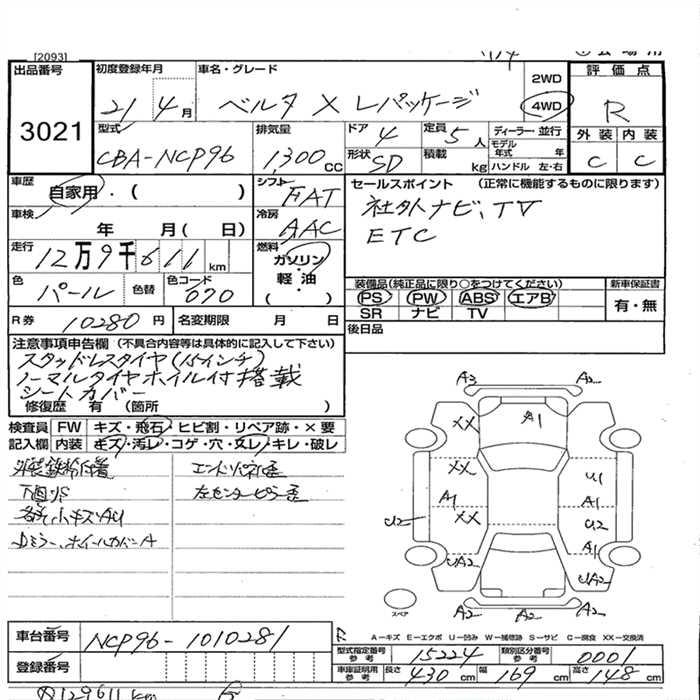 [2093]
出品番号 3021
初度登録年月 21年 4月
車名・グレード ベルタ X Lパッケージ
2WD
4WD
評価点 R
外装 内装
C C
型式 CBA-NCP96
排気量 1,300 CC
ドア 4
形状 SD
定員 5人
積載 kg
ディーラー・並行
モデル年式 年
ハンドル 左・右
車歴 自家用・( )
シフト FAT
車検 年 月( 日)
冷房 AAC
走行 12万9千611km
燃料 ガソリン・軽油・( )
色 パール 色替
色コード 070
R券 10280円
名変期限 月 日
セールスポイント (正常に機能するものに限ります)
社外ナビ、TV
ETC
装備品(純正品に限り○をつけてください)
PS PW ABS エアB
SR ナビ TV
新車保証書
有・無
後日品
注意事項申告欄(不具合内容等は具体的に記入して下さい)
スタッドレスタイヤ(15インチ)
ノーマルタイヤホイル付搭載
シートカバー
修復歴 有 (箇所 )
検査員記入欄
FW キズ・飛石・ヒビ割・リペア跡・×要
内装 キズ・汚レ・コゲ・穴・ヌレ・キレ・破レ
エンドパネル歪
左センターピラー歪
各部小キズAU
Dミラー、ホイールカバーA
A3 A2
XX A1
XX U1
A1 A1
U2 XX U2
A1
UA2 UA2
A2 A2 A2
スペア
R A－キズ E－エクボ U－凹み W－補修跡 S－サビ C－腐食 XX－交換済
車台番号 NCP96-1010281
登録番号
型式指定番号 参考 15224
類別区分番号 参考 0001
車庫証明用 参考 長さ 430cm 幅 169cm 高さ 148cm
129611 km